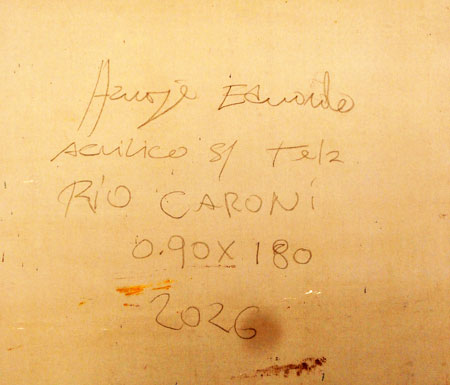 Azuaje Eduardo
Acrilico s/ Tela
RÍO CARONÍ
0.90 X 180
2026